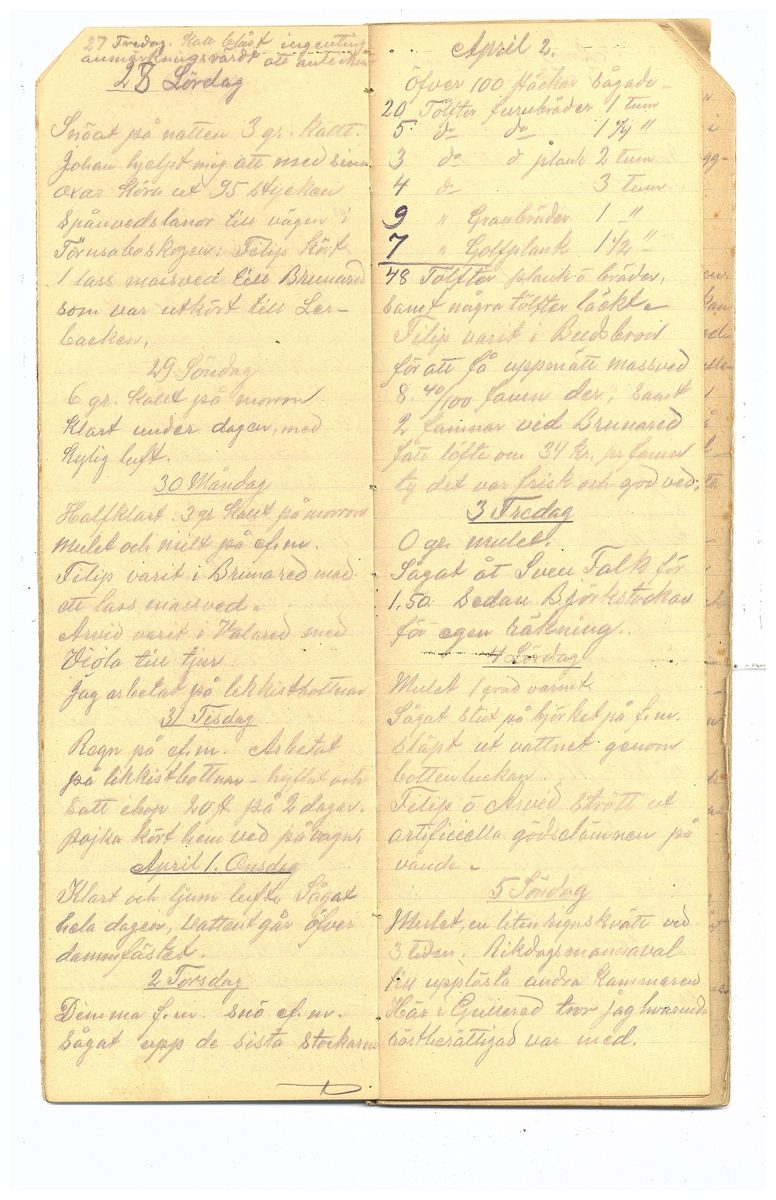 27 Fredag. Kall blåst ingenting
anmärkningsvärdt att anteckna
28 Lördag
Snöat på natten 3 gr. kallt.
Johan hjelpt mig att med sina
oxar köra ut 95 stycken
Spånvedslanor till vägen i
Törnsaboskogen; Filip kört
1 lass massved till Brunared
som var utkört till Ler-
backen.
29 Söndag
6 gr. kallt på morron
Klart under dagen, med
kylig luft.
30 Måndag
Halfklart. 3 gr kallt på morron
mulet och milt på ef.m.
Filip varit i Brunared med
ett lass massved.
Arvid varit i Valared med
Viola till tjur.
Jag arbetat på likkistbottnar
31 Tisdag
Regn på ef.m. Arbetat
på likkistbottnar - hyflat och
satt ehop 20 st på 2 dagar.
pojka kört hem ved på vagn.
April 1. Onsdag
Klart och ljum luft. Sågat
hela dagen, vattnet går öfver
dammfästet.
2 Torsdag
Dimma f.m. snö ef.m.
Sågat upp de sista stockarne
April 2.
öfver 100 stäckar sågade -
20 Tölfter furubräder 1 tum
5 do do 1 1/4 "
3 do d plank 2 tum
4 do 3 tum
9 " Granbräder 1 - "
7 " Golfplank 1 1/2 "
48 Tölfter plank o bräder,
samt några tölfter läckt -
Filip varit i
för att få uppmätt massved
8. 40/100 famn der; samt
2 famnar ved Brunared
fått löfte om 34 kr. pr famn
ty det var frisk och god ved.
3 Fredag
0 gr. mulet.
Sågat åt Sven Falk för
1.50. Sedan Björkstockar
för egen räkning.
4 Lördag
Mulet 1 grad varmt
Sågat slut på björket på f.m.
släpt ut vattnet genom
bottenluckan.
Filip o Arvid strött ut
artificiella gödselämnen på
vända -
5 Söndag
Mulet, en liten regnskvätt ved
3 tiden. Rikdagsmannaval
till upplösta andra kammaren
Här i Gullered tror jag hvarenda
röstberättigad var med.